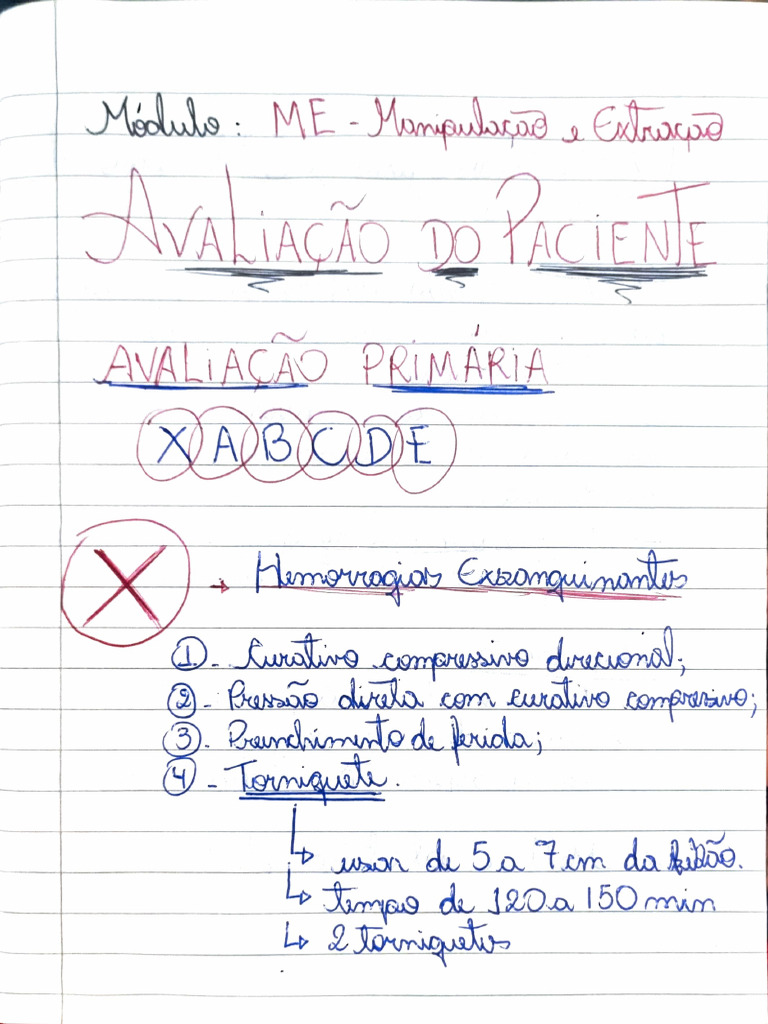 Módulo: ME - Manipulação e Extração
AVALIAÇÃO DO PACIENTE
AVALIAÇÃO PRIMÁRIA
X A B C D E
X → Hemorragias Exsanguinantes
1 - Curativo compressivo direcional;
2 - Pressão direta com curativo compressivo;
3 - Preenchimento de ferida;
4 - Torniquete.
↳ usar de 5 a 7 cm da lesão.
↳ tempo de 120 a 150 min
↳ 2 torniquetes